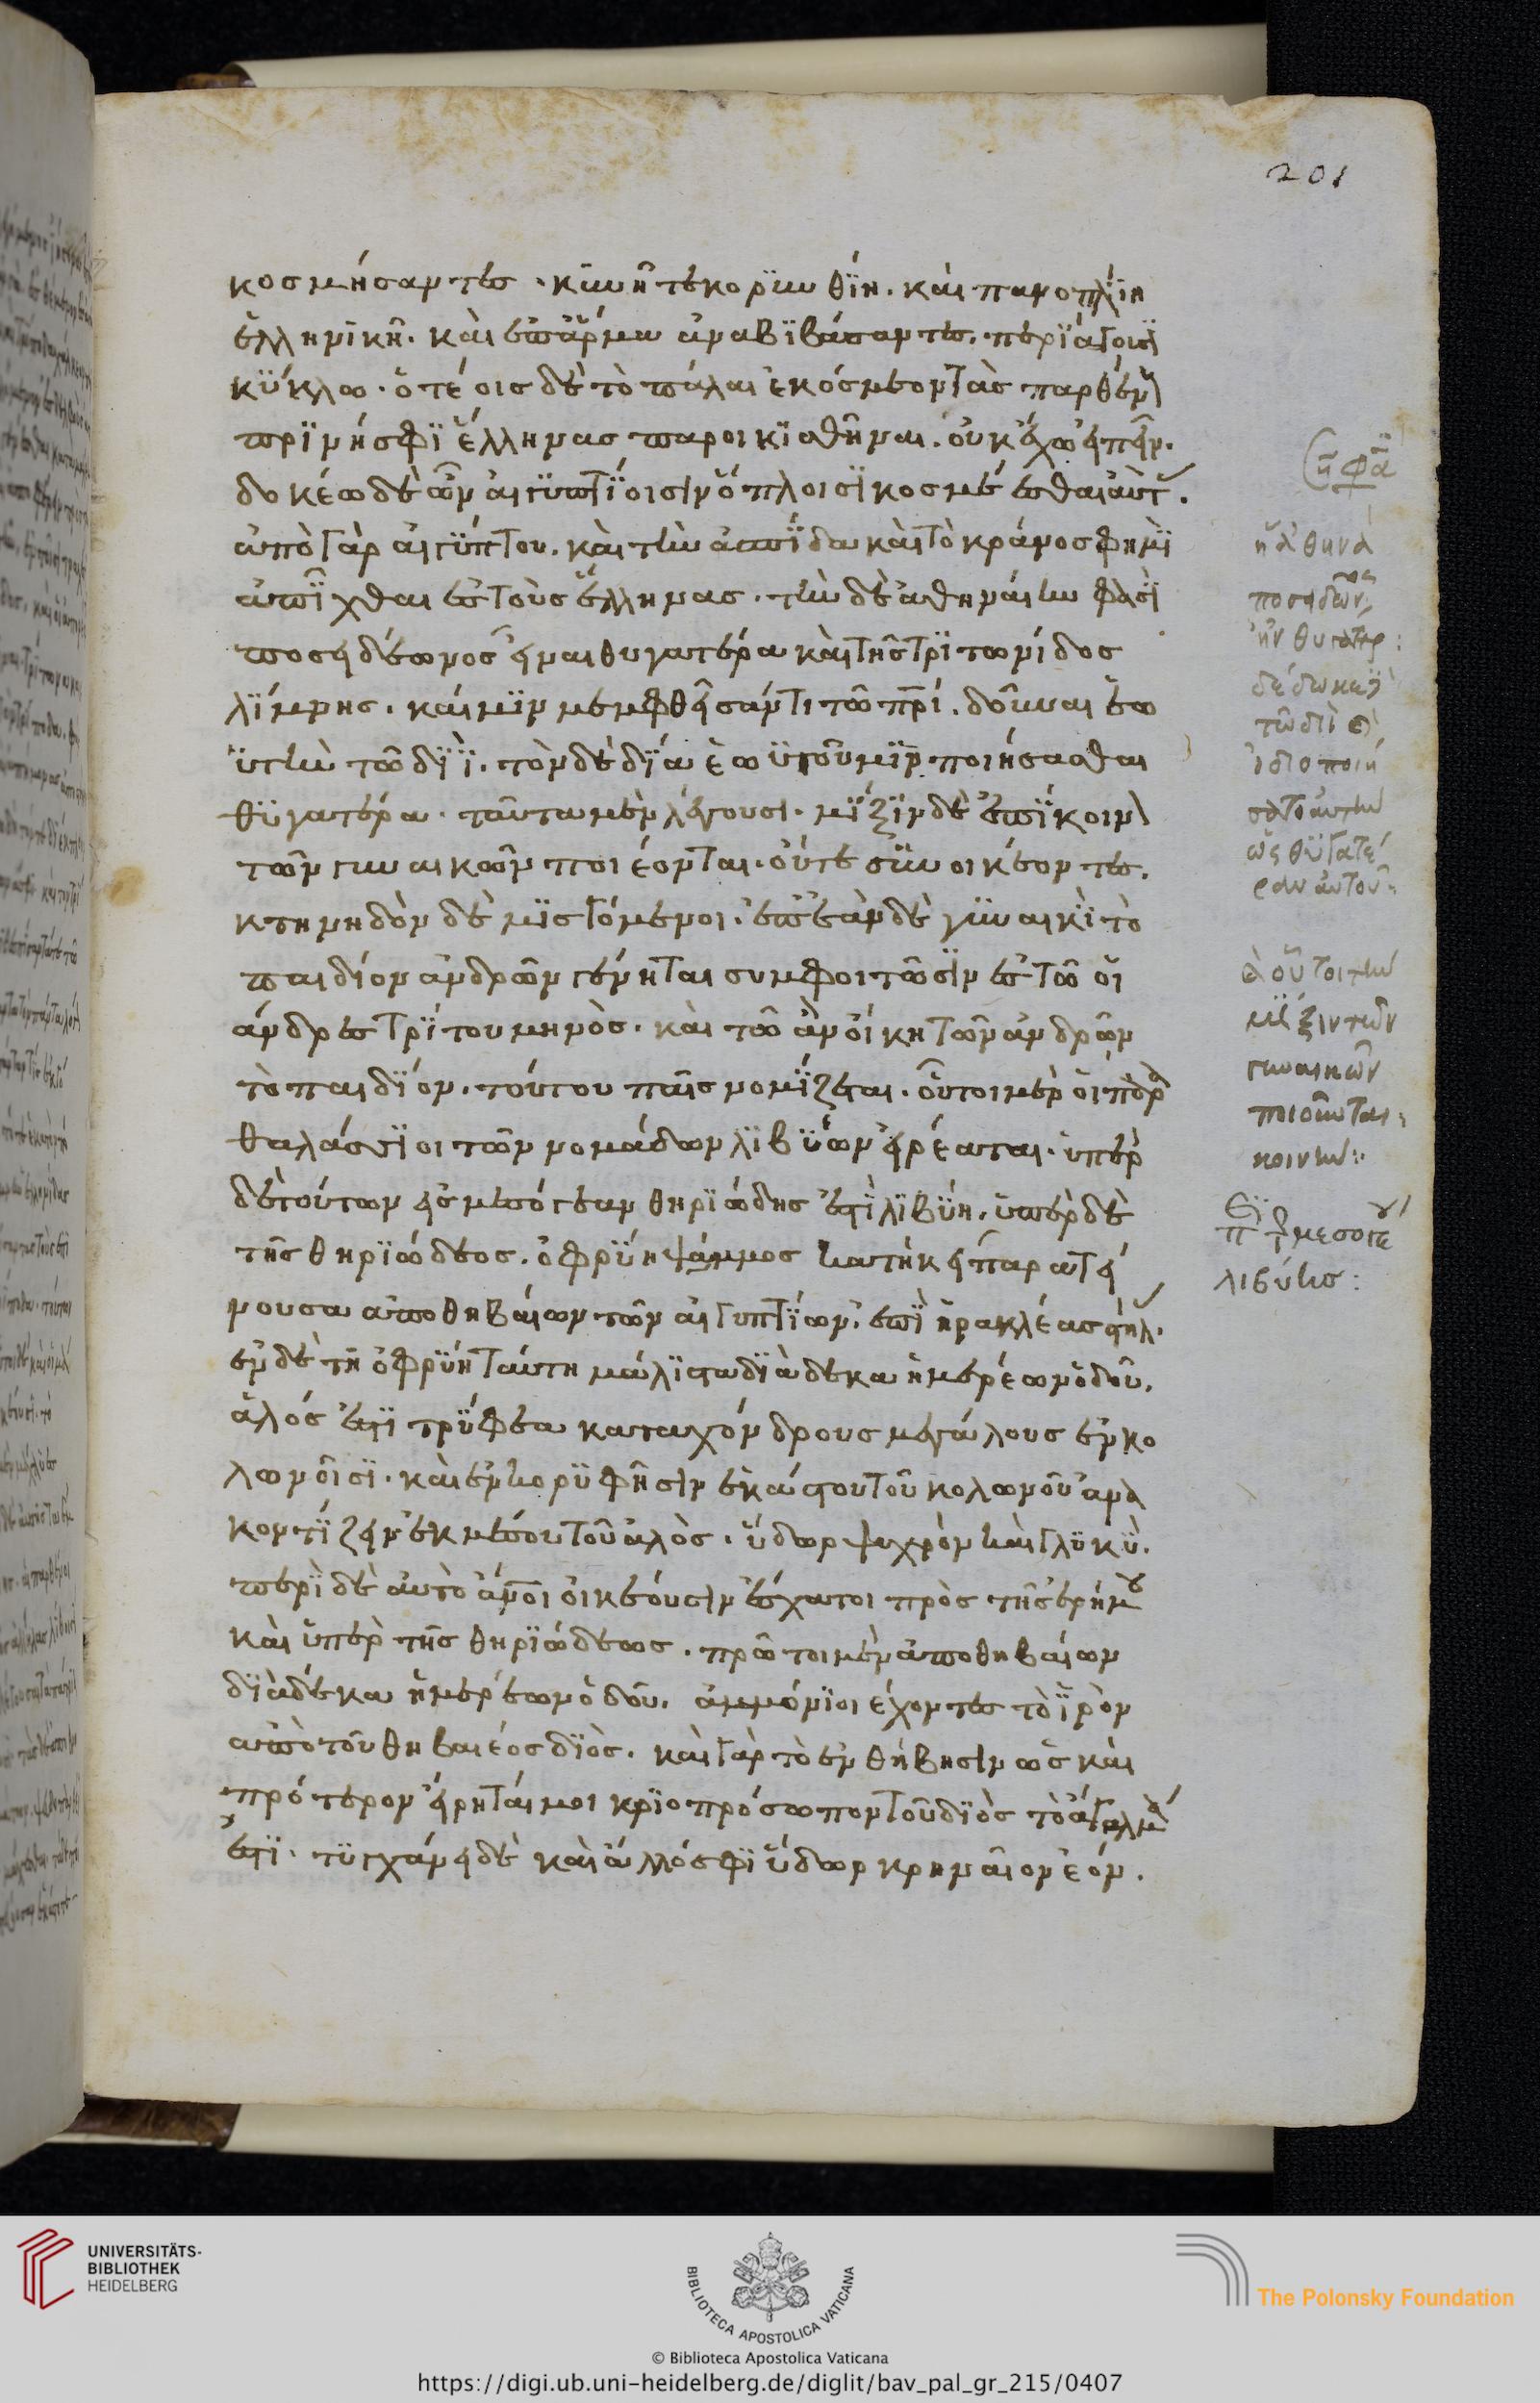 201
κοσμήσαντες . κυνῆ τε κορινθίη . καὶ πανοπλίη
ἑλληνικῆ . καὶ ἐπ' ἅρμα ἀναβιβάσαντες . περιάγουσι
κύκλω . ὁτέοισ δὲ τὸ πάλαι ἐκόσμεον τὰς παρθέν
πρινή σφι ἕλληνας παροικισθῆναι . οὐκ ἔχω εἰπεῖν .
δοκέω δὲ ὦν αἰγυπτίοισιν ὅπλοισι κοσμέεσθαι αὐτ .
ἀπὸ γὰρ αἰγύπτου . καὶ τὴν ἀσπίδα καὶ τὸ κράνος φημὶ
ἀπῖχθαι ἐς τοὺς ἕλληνας . τὴν δὲ ἀθηναίην φασὶ
ποσειδέωνος εἶναι θυγατέρα καὶ τῆς τριτωνίδος
λίμνης . καί μιν μεμφθεῖσάν τι τῶ πρί . δοῦναι ἑω
ϋτὴν τῶ διΐ . τὸν δὲ δία ἑωϋτοῦ μιν ποιήσασθαι
θυγατέρα . ταῦτα μὲν λέγουσι . μίξιν δὲ ἐπίκοιν
τῶν γυναικῶν ποιέονται . οὔτε συνοικέοντες .
κτηνηδὸν δὲ μισγόμενοι . ἐπεὰν δὲ γυναικὶ τὸ
παιδίον ἁνδρῶν γένηται συμφοιτῶσιν ἐς τῶ οἱ
ἄνδρες τρίτου μηνὸς . καὶ τῶ ἂν οἴκη τῶν ἀνδρῶν
τὸ παιδίον . τούτου παῖς νομίζεται . οὗτοι μὲν οἱ παρα
θαλάσσιοι τῶν νομάδων λιβύων εἰρέαται . ὑπὲρ
δὲ τούτων ἐς μεσόγεαν θηριώδης ἐστὶ λιβύη . ὑπὲρ δὲ
τῆς θηριώδεος . ὀφρύη ψάμμος κατήκει παρατεί
νουσα ἀπο θηβαίων τῶν αἰγυπτίων . ἐπὶ ἡρακλέας στήλ .
ἐν δὲ τῆ ὀφρύη ταύτη μάλιστα διὰ δεκα ἡμερέων ὁδοῦ .
ἁλός ἐστι τρύφεα κατα χόνδρους μεγάλους ἐν κο
λωνοῖσι . καὶ ἐν κορυφῆσιν ἑκάστου τοῦ κολωνοῦ ἀνα
κοντίζει ἐκ μέσου τοῦ ἁλὸς . ὕδωρ ψυχρὸν καὶ γλυκὺ .
περὶ δὲ αὐτὸ ἄνοι οἰκέουσιν ἔσχατοι πρὸς τῆς ἐρήμου
καὶ ὑπὲρ τῆς θηριώδεως . πρῶτοι μὲν ἀπο θηβαίων
διὰ δέκα ἡμερέων ὁδοῦ . ἀμμώνιοι ἔχοντες τὸ ἱρὸν
ἀπὸ τοῦ θηβαιέος διὸς . καὶ γὰρ τὸ ἐν θήβησιν ὡς καὶ
πρότερον εἴρηταί μοι κριοπρόσωπον τοῦ διὸς τὸ ἄγαλμα
ἐστι . τυγχάνει δὲ καὶ ἄλλο σφι ὕδωρ κρηναῖον ἐόν .
ἡ ἀθηνᾶ
ποσειδῶνος
ἦν θυγατηρ :
δέδωκεν
τῶ διὶ
ἰδιοποιή
σατο αὐτὴν
ὡς θυγατέ
ραν αὐτοῦ :
οὗτοι τὴν
μίξιν τῶν
γυναικῶν
ποιοῦνται
κοινήν :
μεσογείου
λιβύης :
UNIVERSITÄTS-
BIBLIOTHEK
HEIDELBERG
BIBLIOTECA APOSTOLICA VATICANA
The Polonsky Foundation
© Biblioteca Apostolica Vaticana
https://digi.ub.uni-heidelberg.de/diglit/bav_pal_gr_215/0407